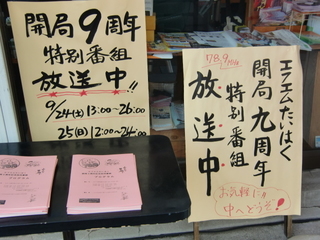 開局9周年
特別番組
放送中!!
9/24(土)13:00~26:00
25(日)12:00~24:00
78.9MHz
エフエムたいはく
開局九周年
特別番組
放送中
お気軽に
中へどうぞ!